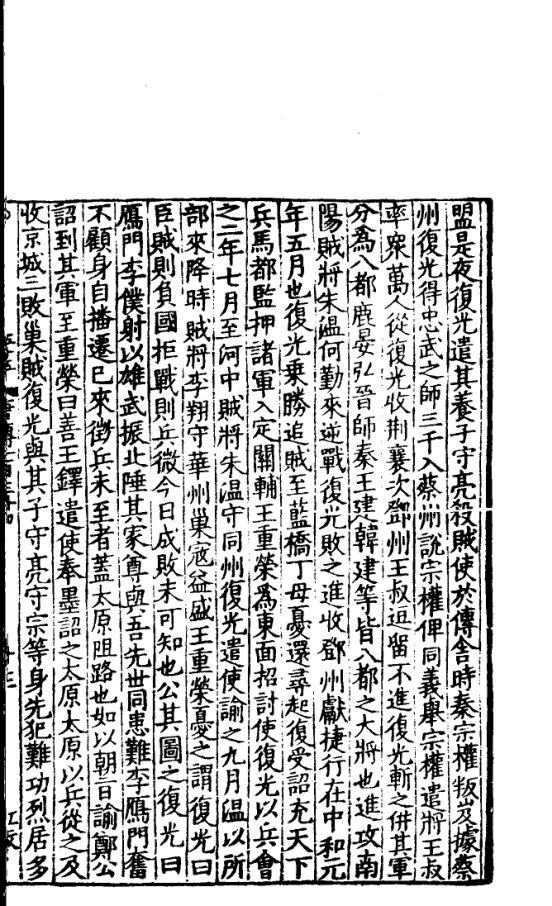 盟是夜復光遣其養子守亮殺賊使於傳舍時秦宗權叛岌據蔡
州復光得忠武之師三千入蔡州說宗權俾同義舉宗權遣將王叔
率衆萬人從復光收荆襄次鄧州王叔逗留不進復光斬之併其軍
分爲八都鹿晏弘晉師秦王建韓建等皆八都之大將也進攻南
陽賊將朱温何勤來逆戰復光敗之進收鄧州獻捷行在中和元
年五月也復光乗勝追賊至藍橋丁母憂還尋起復受詔充天下
兵馬都監押諸軍入定關輔王重榮爲東面招討使復光以兵會
之二年七月至河中賊將朱温守同州復光遣使諭之九月温以所
部來降時賊將李翔守華州巢宼益盛王重榮憂之謂復光曰
臣賊則負國拒戰則兵微今日成敗未可知也公其圖之復光曰
鴈門李僕射以雄武振北陲其家尊與吾先世同患難李鴈門奮
不顧身自播遷已來徴兵未至者蓋太原阻路也如以朝旨諭鄭公
詔到其軍至重榮曰善王鐸遣使奉墨詔之太原太原以兵從之及
收京城三敗巢賊復光與其子守亮守宗等身先犯難功烈居多